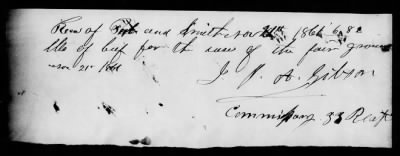 Recd of and Smith nov 21st 1861 68
lbs of beef for the use of the fair ground
nov 21st 1861
J P A Gibson
Commissary 33 Regt